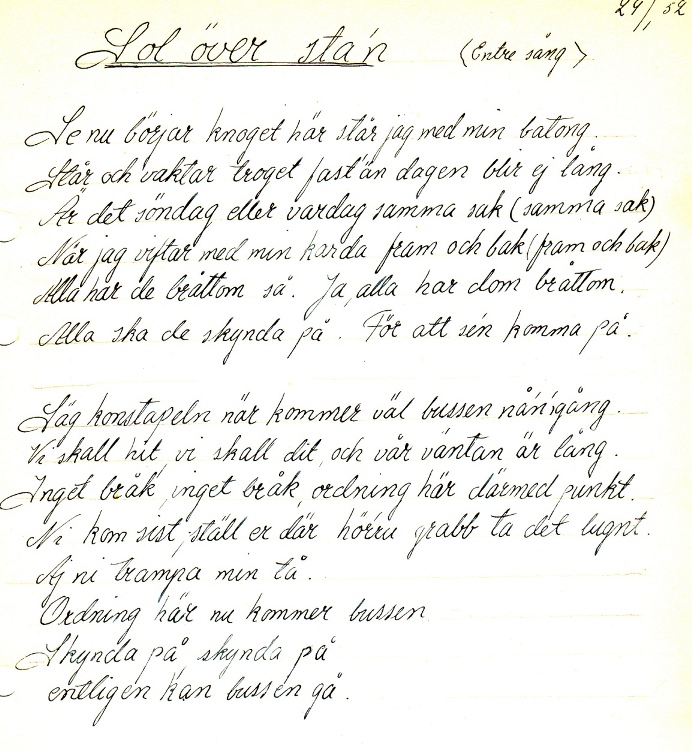 24/, 52
Sol över sta'n (Entre sång)
Se nu börjar knoget här står jag med min batong.
Står och vaktar troget fast'än dagen blir ej lång.
Är det söndag eller vardag samma sak (samma sak)
När jag viftar med min karda fram och bak (fram och bak)
Alla har de bråttom så. Ja, alla har dom bråttom.
Alla ska de skynda på. För att sén komma på.
Säg konstapeln när kommer väl bussen nån'gång.
Vi skall hit, vi skall dit, och vår väntan är lång.
Inget bråk, inget bråk, ordning här därmed punkt.
Ni kom sist, ställ er där hörru grabb ta det lugnt.
Aj ni trampa min tå.
Ordning här nu kommer bussen
Skynda på, skynda på
entligen kan bussen gå.